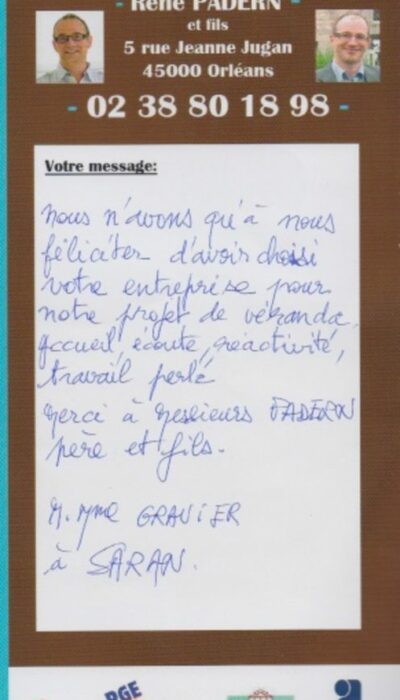 - René PADERN -
et fils
5 rue Jeanne Jugan
45000 Orléans
- 02 38 80 18 98 -
Votre message:
nous n'avons qu'à nous
féliciter d'avoir choisi
votre entreprise pour
notre projet de véranda,
Accueil, écoute, réactivité,
travail perlé
Merci à Messieurs PADERN
père et fils.
M. Mme GRAVIER
à SARAN.